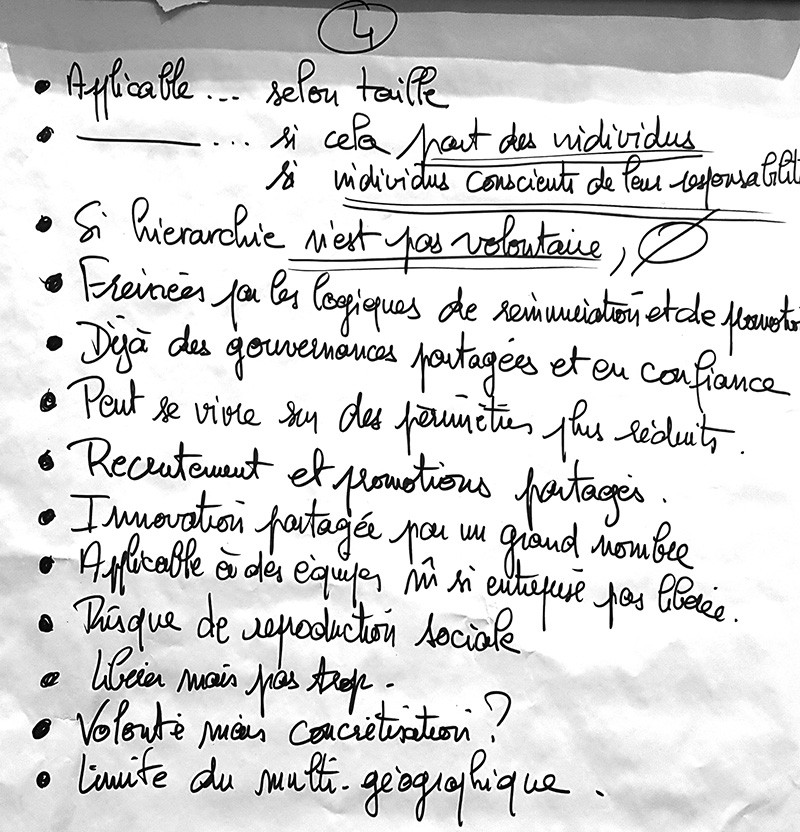 4
• Applicable ... selon taille
• ——— ... si cela part des individus
si individus conscients de leur responsabilit
• Si hierarchie n'est pas volontaire, ∅
• Freinées par les logiques de rémunération et de promoti
• Déjà des gouvernances partagées et en confiance
• Peut se vivre sur des périmètres plus réduits.
• Recrutement et promotions partagés.
• Innovation partagée par un grand nombre
• Applicable à des équipes m̂ si entreprise pas libérée.
• Risque de reproduction sociale
• Libérer mais pas trop -
• Volonté mais concrétisation ?
• Limite du multi-géographique.